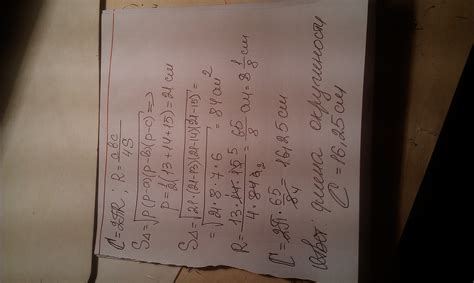 C=2πR ; R = abc/4S
S△=√p(p-a)(p-b)(p-c) ⇒
p=1/2(13+14+15)=21 см
S△=√21·(21-13)(21-14)(21-15)=
=√21·8·7·6 = 84 см²
R= 13·14·15 5/4·84 2 = 65/8 см = 8 1/8 см
C=2π·65/84 = 16,25 см
Ответ: длина окружности
C=16,25 см